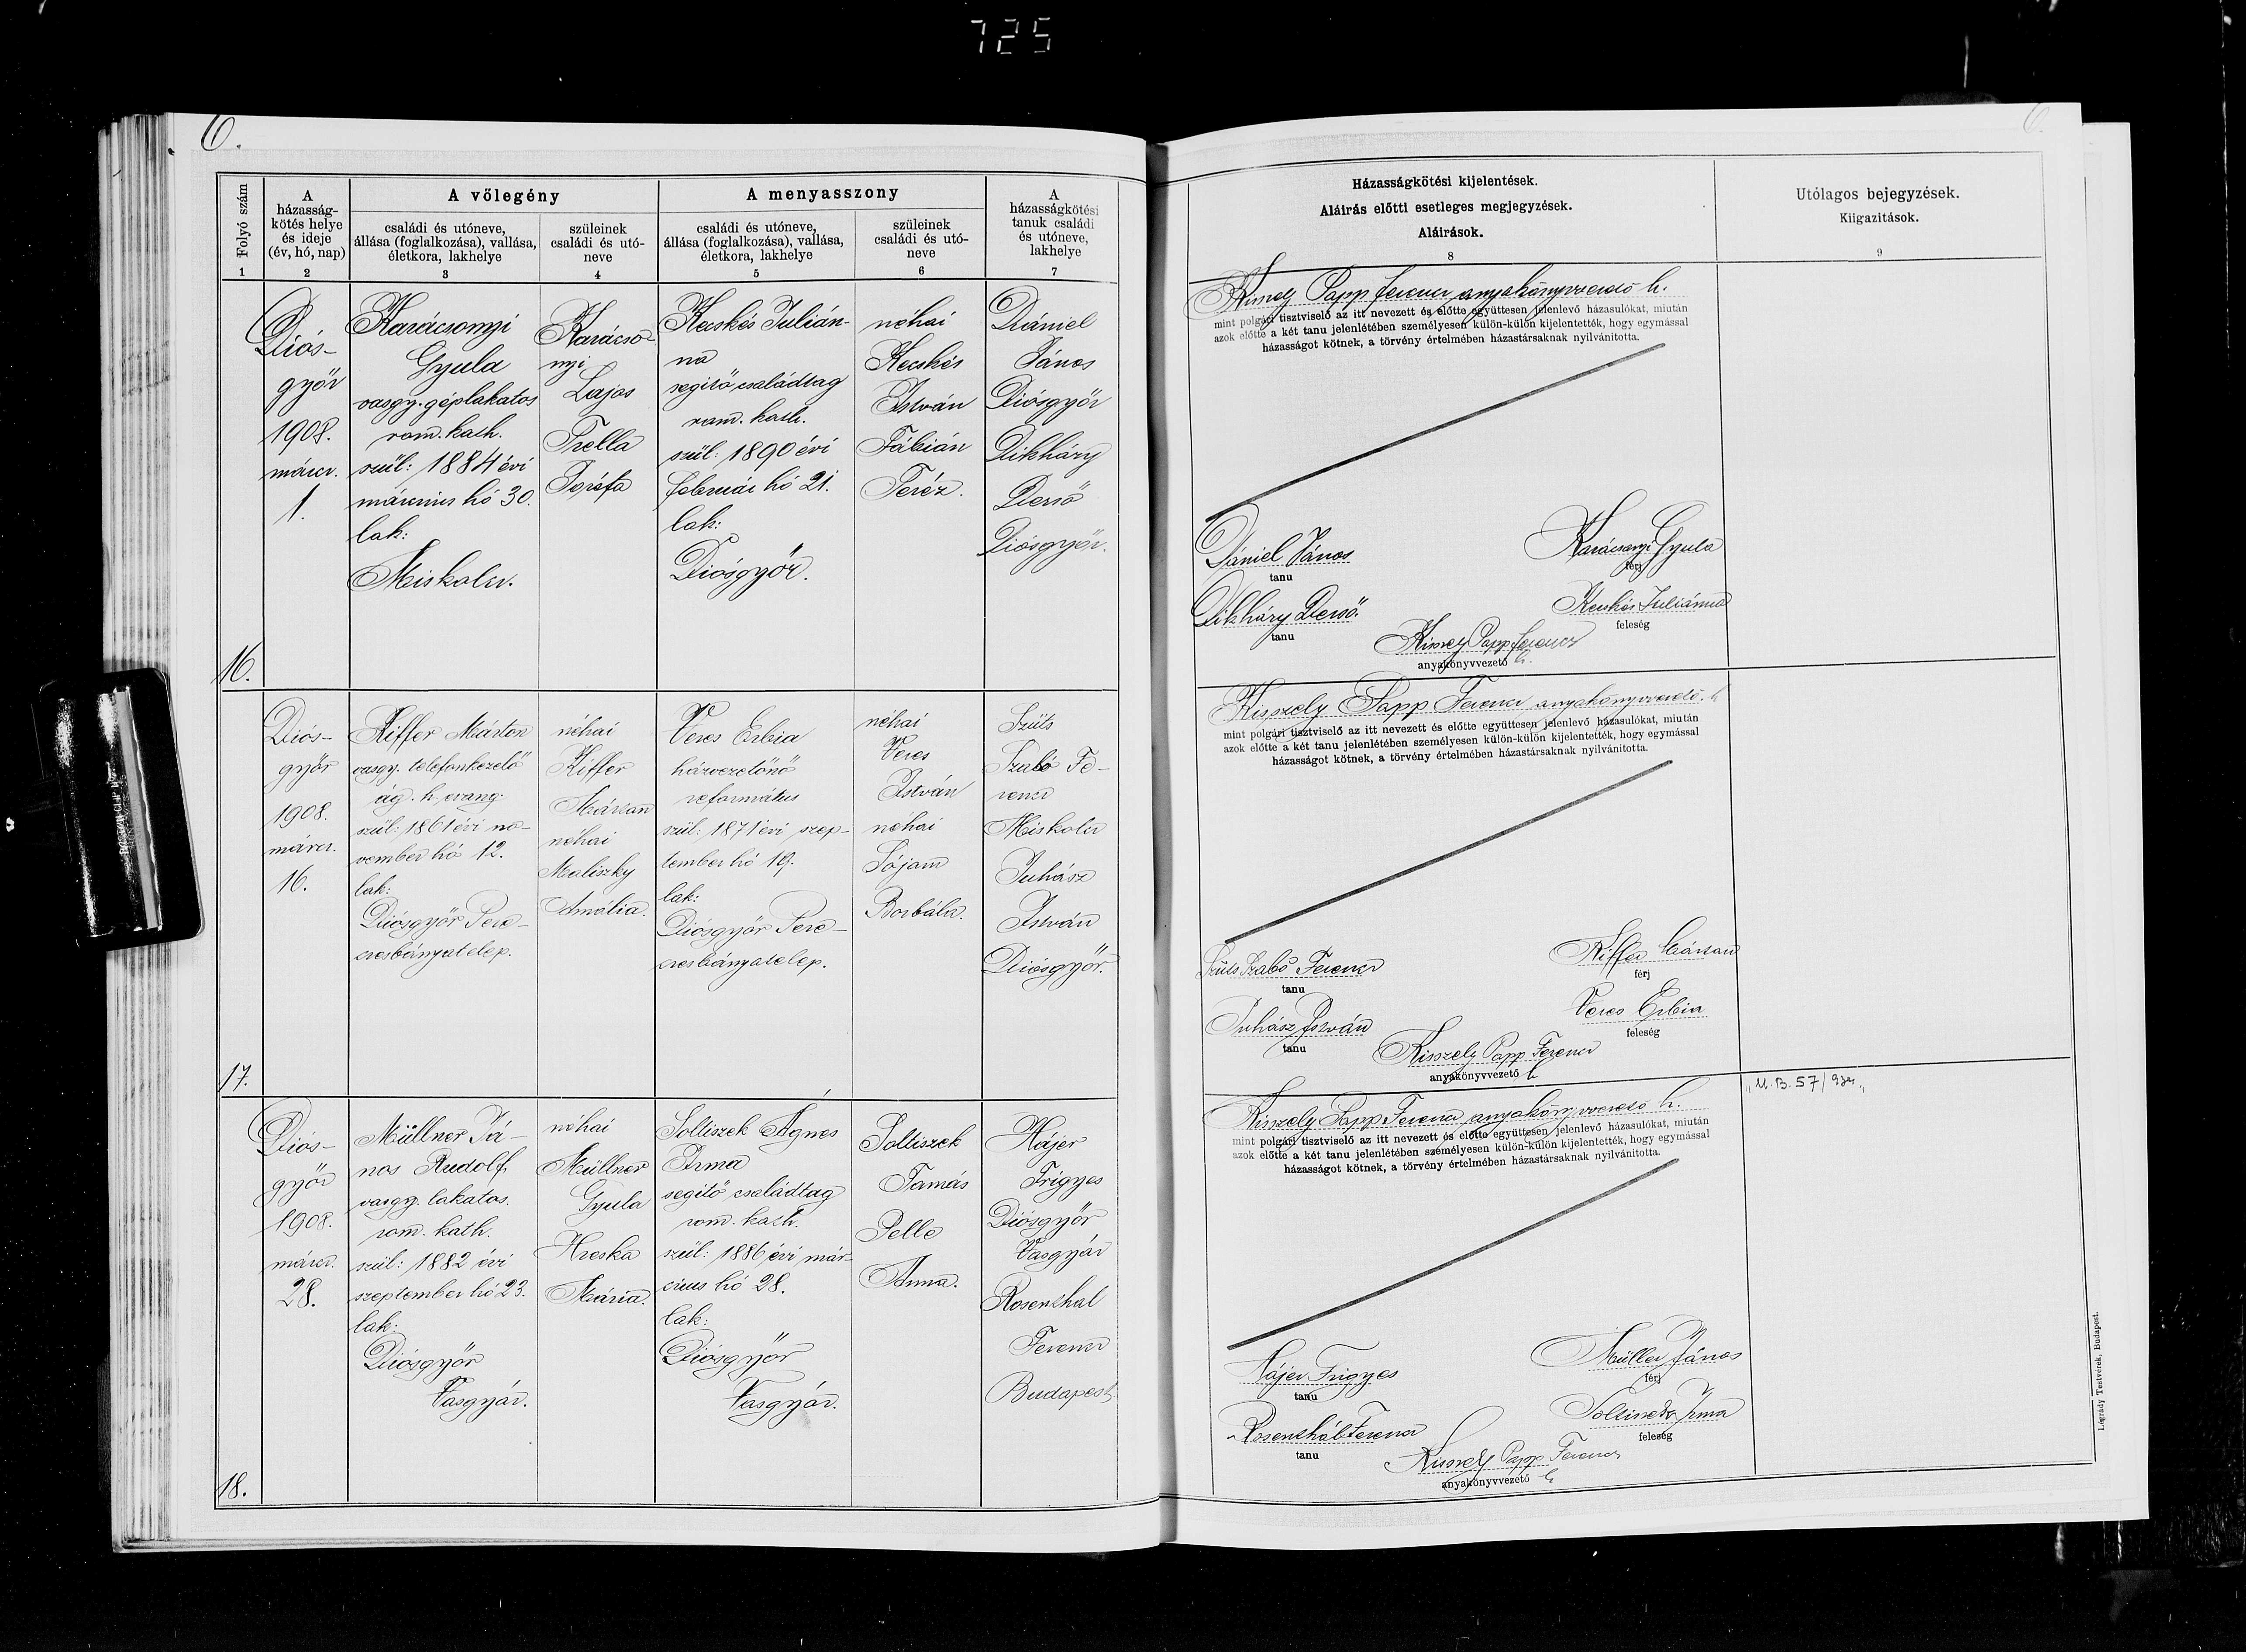 725
6.
6.
Folyó szám
A
házasság-
kötés helye
és ideje
(év, hó, nap)
A vőlegény
családi és utóneve,
állása (foglalkozása), vallása,
életkora, lakhelye
szüleinek
családi és utó-
neve
A menyasszony
családi és utóneve,
állása (foglalkozása), vallása,
életkora, lakhelye
szüleinek
családi és utó-
neve
A
házasságkötési
tanuk családi
és utóneve,
lakhelye
1
2
3
4
5
6
7
Házasságkötési kijelentések.
Aláirás előtti esetleges megjegyzések.
Aláirások.
8
Utólagos bejegyzések.
Kiigazitások.
9
16.
Diós-
győr
1908.
márcz.
1.
Karácsonyi
Gyula
vasgy. géplakatos
rom. kath.
szül: 1884 évi
márczius hó 30.
lak:
Miskolcz.
Karácso-
nyi
Lajos
Trella
Jozéfa
Kecskés Julián-
na
segitő családtag
rom. kath.
szül: 1890 évi
február hó 21.
lak:
Diósgyőr.
néhai
Kecskés
István
Fábián
Teréz.
Dániel
János
Diósgyőr
Dikháry
Dezső
Diósgyőr.
Kisszely Papp Ferencz anyakönyvvezető h.
mint polgári tisztviselő az itt nevezett és előtte együttesen jelenlevő házasulókat, miután
azok előtte a két tanu jelenlétében személyesen külön-külön kijelentették, hogy egymással
házasságot kötnek, a törvény értelmében házastársaknak nyilvánitotta.
Dániel János
tanu
Karácsonyi Gyula
férj
Dikháry Dezső.
tanu
Kecskés Juliánna
feleség
Kisszely Papp Ferencz
anyakönyvvezető h.
17.
Diós-
győr
1908.
márcz.
16.
Kiffer Márton
vasgy. telefonkezelő
ág. h. evang.
szül: 1861 évi no-
vember hó 12.
lak:
Diósgyőr Pere-
czesbányatelep.
néhai
Kiffer
Márton
néhai
Maliszky
Amália.
Veres Erbia
házvezetőnő
református
szül: 1871 évi szep-
tember hó 19.
lak:
Diósgyőr Pere-
czesbányatelep.
néhai
Veres
István
néhai
Sójam
Borbála.
Szüts
Szabó Fe-
rencz
Miskolcz
Juhász
István
Diósgyőr.
Kisszely Papp Ferencz anyakönyvvezető. h
mint polgári tisztviselő az itt nevezett és előtte együttesen jelenlevő házasulókat, miután
azok előtte a két tanu jelenlétében személyesen külön-külön kijelentették, hogy egymással
házasságot kötnek, a törvény értelmében házastársaknak nyilvánitotta.
Szüts Szabó Ferencz
tanu
Kiffer Márton
férj
Juhász István
tanu
Veres Erbia
feleség
Kisszely Papp Ferencz
anyakönyvvezető h
18.
Diós-
győr
1908.
márcz.
28.
Müllner Já-
nos Rudolf
vasgy. lakatos.
rom. kath.
szül: 1882 évi
szeptember hó 23.
lak:
Diósgyőr
Vasgyár.
néhai
Müllner
Gyula
Hreska
Mária.
Soltiszek Ágnes
Irma
segitő családtag
rom. kath.
szül: 1886 évi már-
czius hó 28.
lak:
Diósgyőr
Vasgyár.
Soltiszek
Tamás
Pelle
Anna.
Hájer
Frigyes
Diósgyőr
Vasgyár
Rosenthal
Ferencz
Budapest.
Kisszely Papp Ferencz anyakönyvvezető h.
mint polgári tisztviselő az itt nevezett és előtte együttesen jelenlevő házasulókat, miután
azok előtte a két tanu jelenlétében személyesen külön-külön kijelentették, hogy egymással
házasságot kötnek, a törvény értelmében házastársaknak nyilvánitotta.
Hájer Frigyes
tanu
Müller János
férj
Rosenthál Ferencz
tanu
Irma
feleség
Kisszely Papp Ferencz
anyakönyvvezető h
„M. B. 57/
Légrády Testvérek, Budapest.